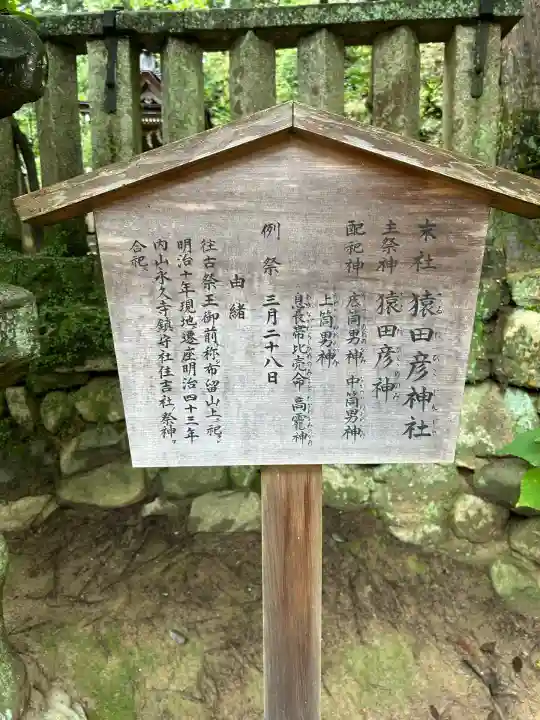 末社 猿田彦神社
主祭神 猿田彦神
配祀神 底筒男神 中筒男神
上筒男神
息長帯比売命 高龗神
例祭 三月二十八日
由緒
往古祭王御前称ヘ布留山上ニ祀ル
明治十年現地遷座明治四十三年
内山永久寺鎮守社住吉社ノ祭神ヲ
合祀ス